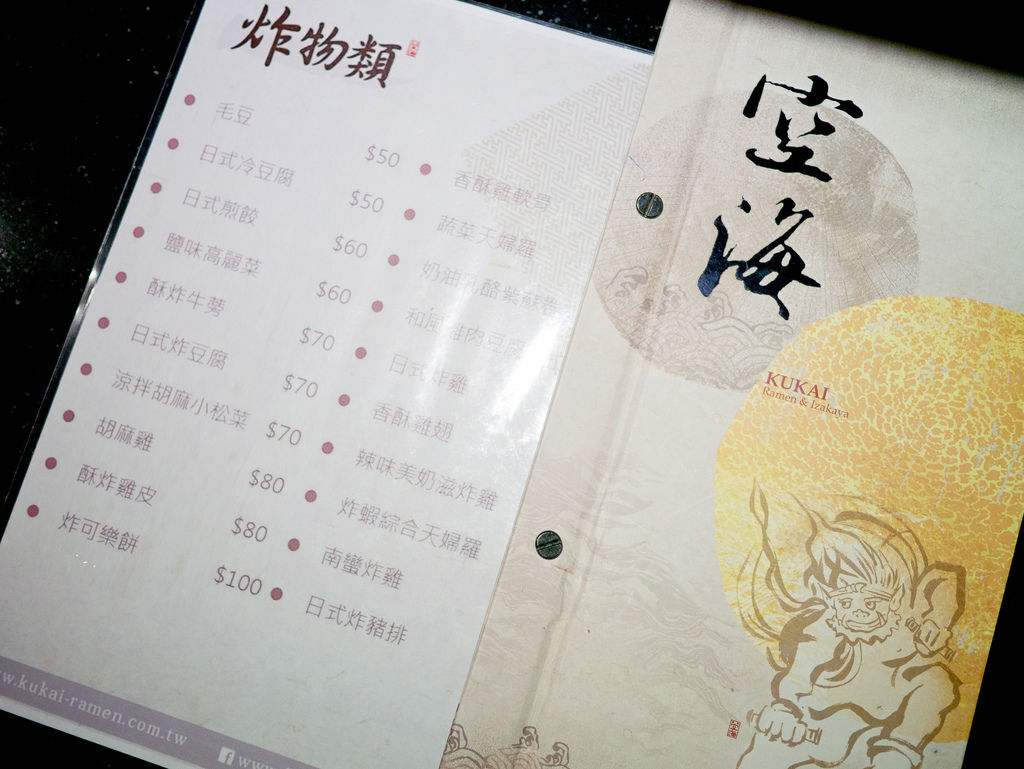 炸物類
毛豆 $50
日式冷豆腐 $50
日式煎餃 $60
鹽味高麗菜 $60
酥炸牛蒡 $70
日式炸豆腐 $70
涼拌胡麻小松菜 $70
胡麻雞 $80
酥炸雞皮 $80
炸可樂餅 $100
香酥雞軟骨
蔬菜天婦羅
奶油乳酪紫蘇卷
和風雞肉豆腐
日式炸雞
香酥雞翅
辣味美奶滋炸雞
炸蝦綜合天婦羅
南蠻炸雞
日式炸豬排
w.kukai-ramen.com.tw
f www.
空海
KUKAI
Ramen & Izakaya